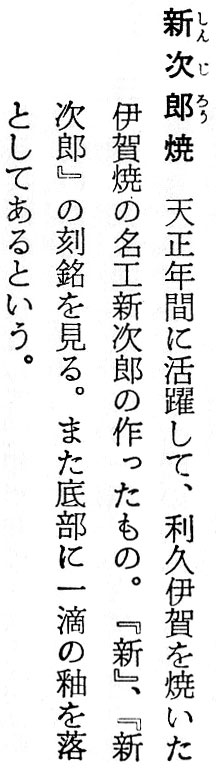 新次郎焼　天正年間に活躍して、利久伊賀を焼いた
伊賀焼の名工新次郎の作ったもの。『新』、『新
次郎』の刻銘を見る。また底部に一滴の釉を落
としてあるという。
しんじろう